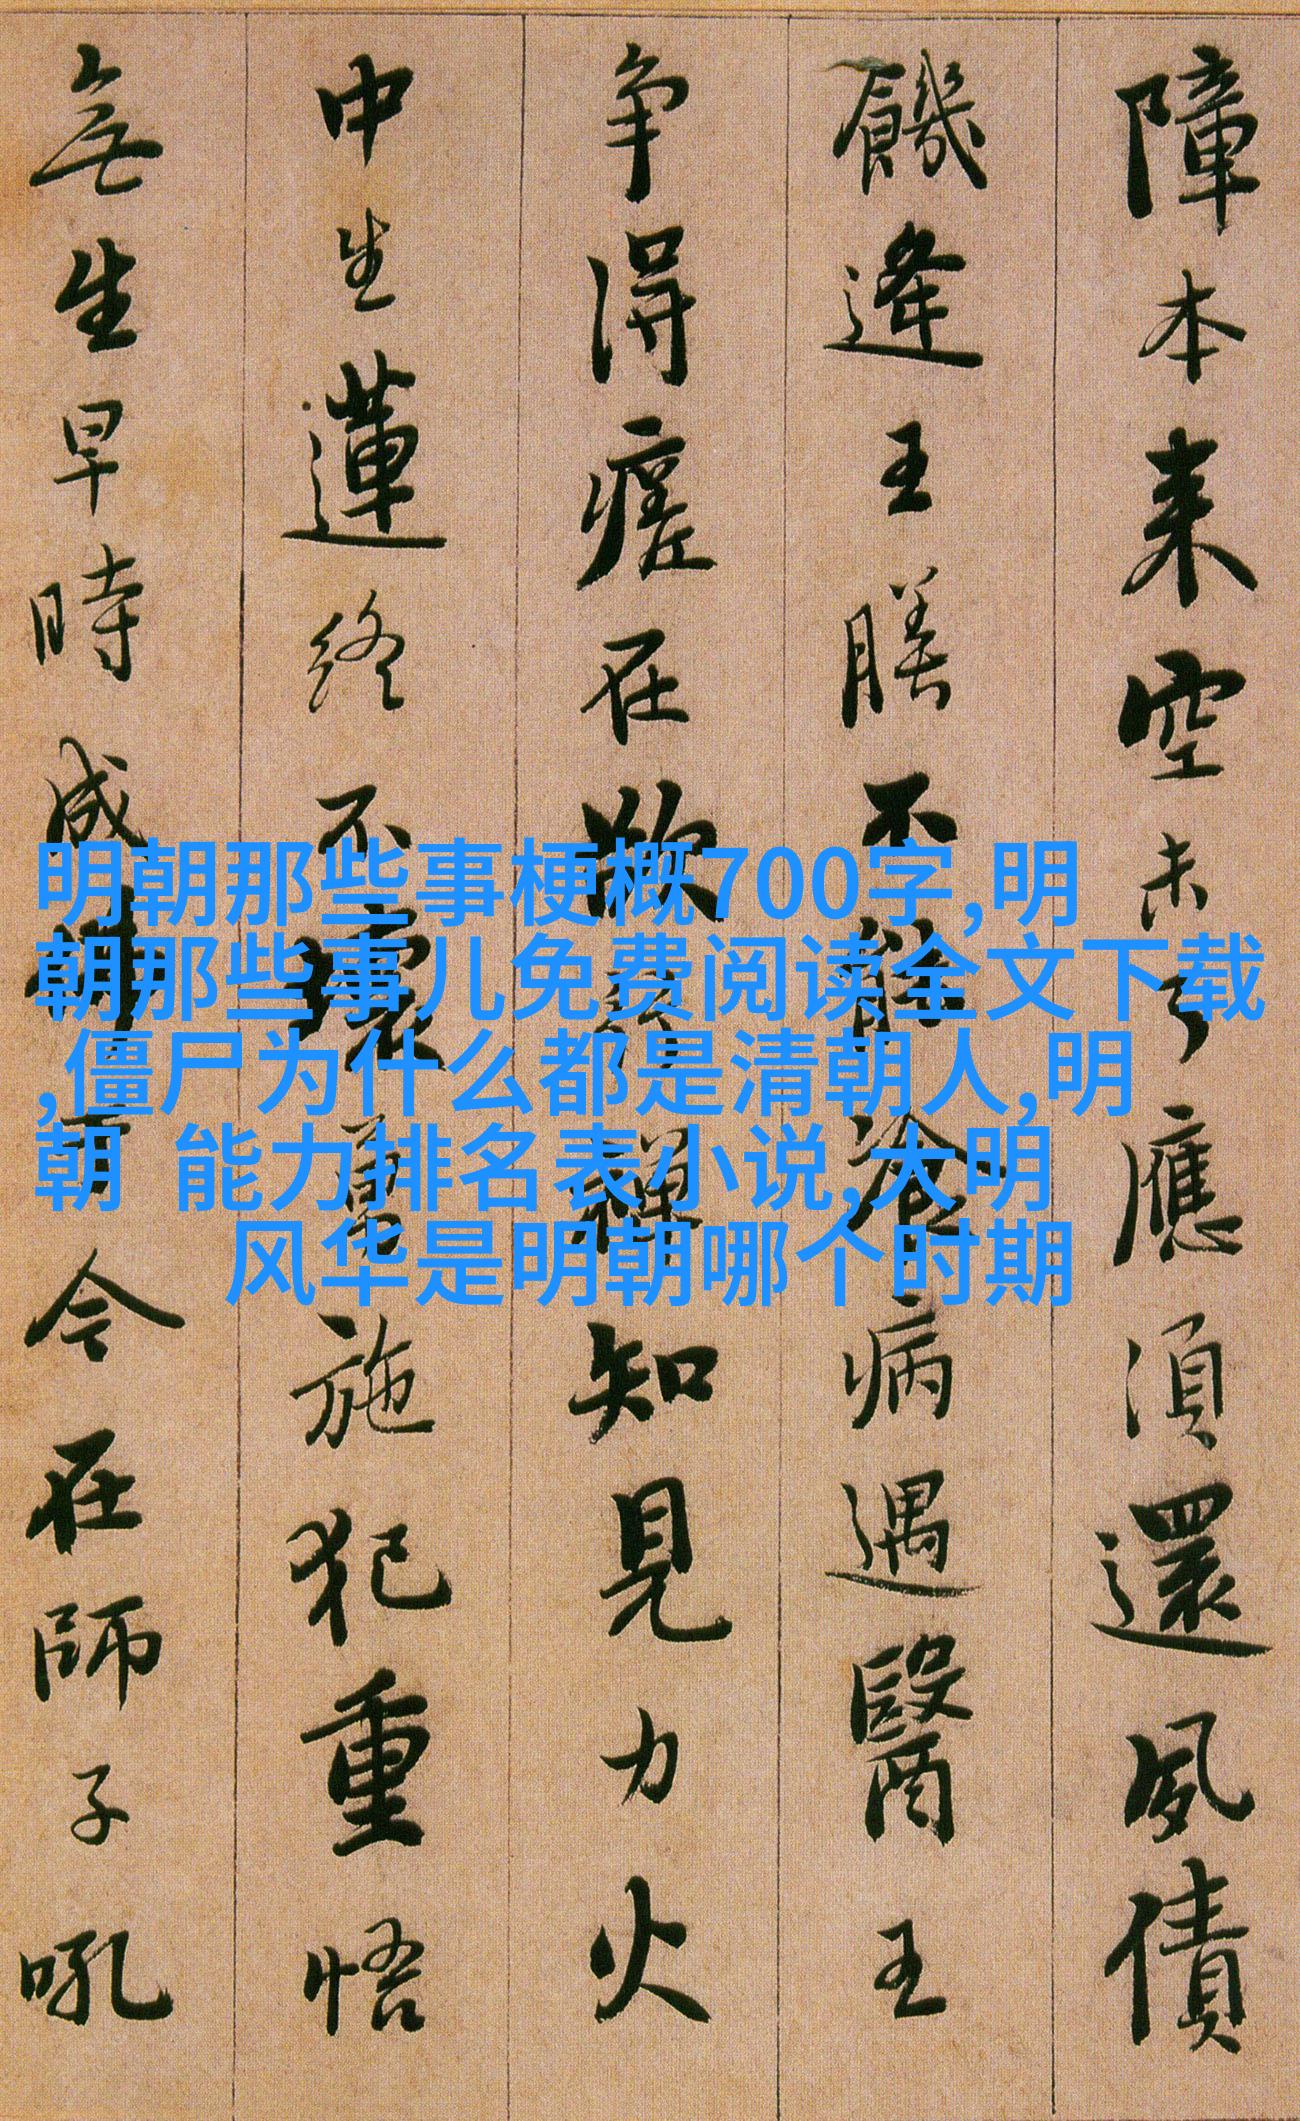 障本来空未了應須還夙債
饑逢王膳不能飡病遇醫王
争得瘥在欲行禪知見力火
中生蓮終不壞勇施犯重悟
無生早時成佛于今在師子吼
明朝那些事梗概700字,明
朝那些事儿免费阅读全文下载
,僵尸为什么都是清朝人,明
朝 能力排名表小说,大明
风华是明朝哪个时期